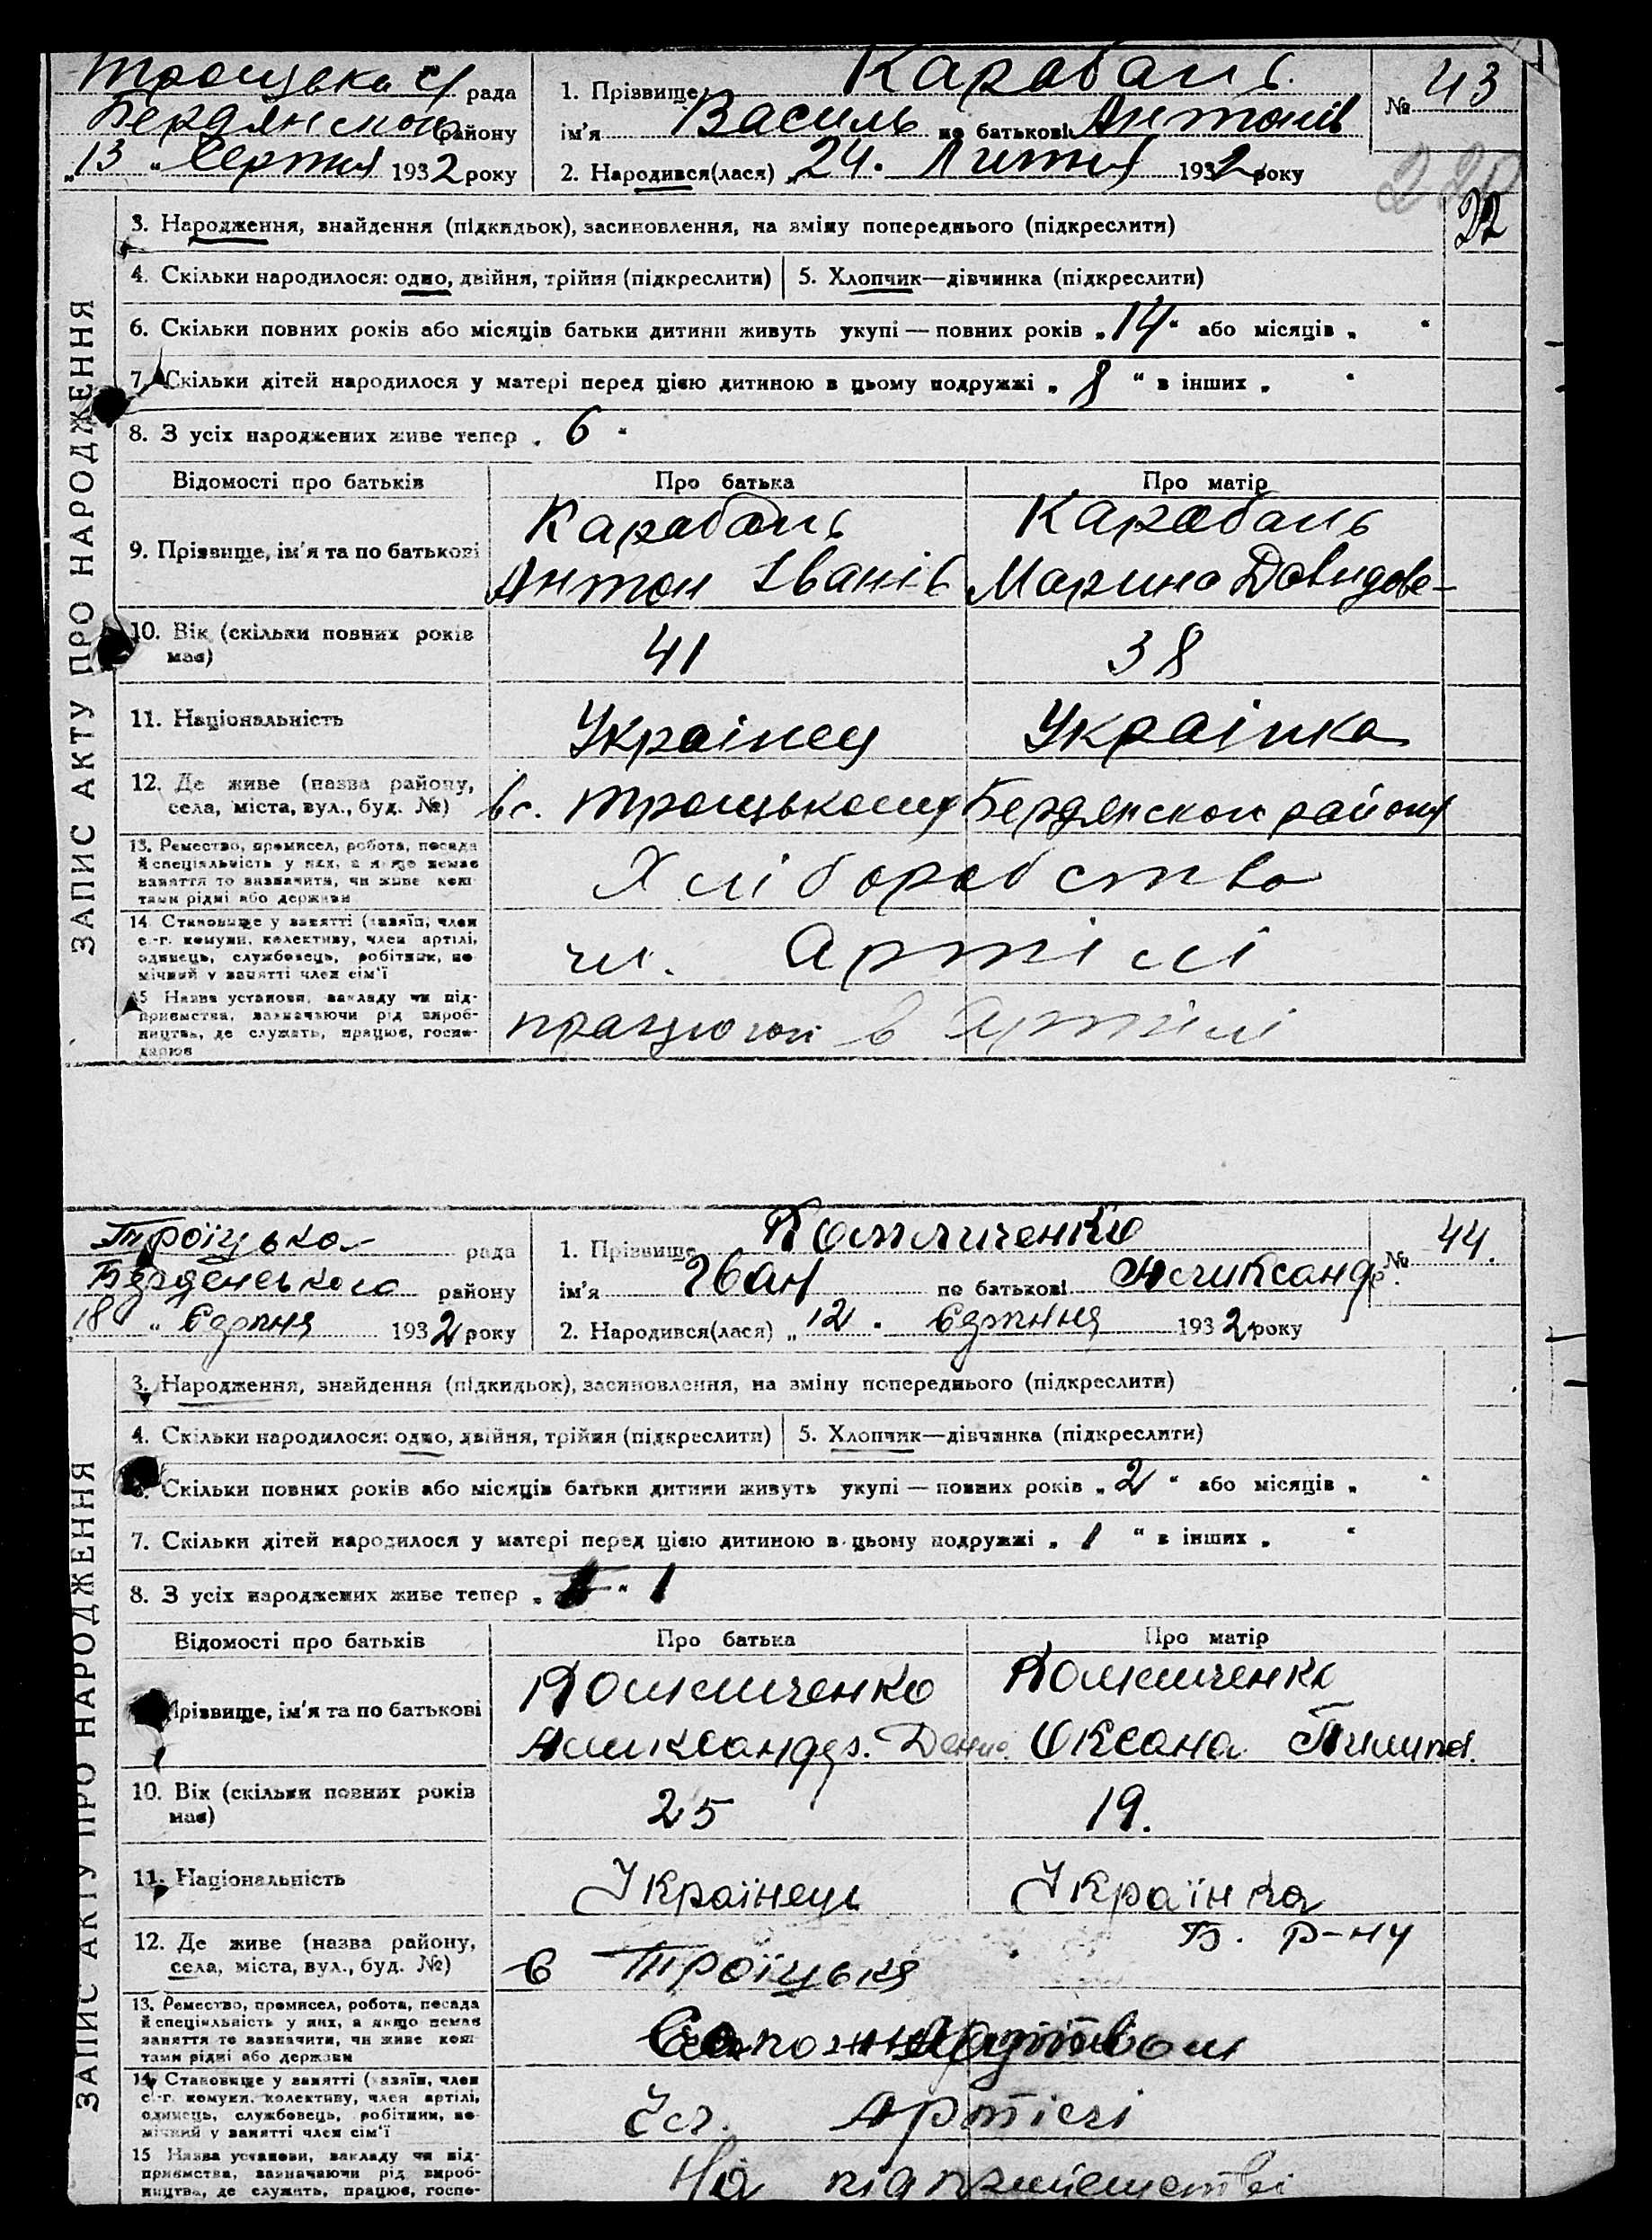 Троцька с/ рада
Бердянского району
„13 “ Серпня 1932 року
1. Прізвище Карабань
ім'я Василь по батькові Антонів
2. Народився(лася) „24 “ Липня 1932 року
№ 43
22
ЗАПИС АКТУ ПРО НАРОДЖЕННЯ
3. Народження, знайдення (підкидьок), засиновлення, на зміну попереднього (підкреслити)
4. Скільки народилося: одно, двійня, трійня (підкреслити) 5. Хлопчик—дівчинка (підкреслити)
6. Скільки повних років або місяців батьки дитини живуть укупі — повних років „ 14 “ або місяців „ “
7. Скільки дітей народилося у матері перед цією дитиною в цьому подружжі „ 8 “ в інших „ “
8. З усіх народжених живе тепер „ 6 “
Відомості про батьків Про батька Про матір
9. Прізвище, ім'я та по батькові
Карабань Карабань
Антон Іванів Марина Давидов-
10. Вік (скільки повних років
має)
41 38
11. Національність Украінец Украінка
12. Де живе (назва району,
села, міста, вул., буд. №)
в с. Троцькому Бердянском району
13. Ремество, промисел, робота, посада
й спеціяльність у них, а якщо немає
заняття то зазначити, чи живе кош-
тами рідні або держави
Хліборобство
14. Становище у занятті (хазяїн, член
с.-г. комуни, колективу, член артілі,
одинець, службовець, робітник, по-
мічний у занятті член сім'ї
чл. Артілі
15 Назва установи, закладу чи під-
приємства, зазначаючи рід вироб-
ництва, де служать, працює, госпо-
дарює
в Артілі
Троїцька рада
району
18 “ Серпня 1932 року
1. Прізвище
ім'я Іван по батькові
2. Народився(лася) „ 12 “ Серпння 1932 року
№ 44.
ЗАПИС АКТУ ПРО НАРОДЖЕННЯ
3. Народження, знайдення (підкидьок), засиновлення, на зміну попереднього (підкреслити)
4. Скільки народилося: одно, двійня, трійня (підкреслити) 5. Хлопчик—дівчинка (підкреслити)
6. Скільки повних років або місяців батьки дитини живуть укупі — повних років „ 2 “ або місяців „ “
7. Скільки дітей народилося у матері перед цією дитиною в цьому подружжі „ 1 “ в інших „ “
8. З усіх народжених живе тепер „ “ 1
Відомості про батьків Про батька Про матір
Прізвище, ім'я та по батькові
Оксана Пилип.
10. Вік (скільки повних років
має)
25 19.
11. Національність Українець Українка
12. Де живе (назва району,
села, міста, вул., буд. №)
Б. Р-ну
в Троїцькя
13. Ремество, промисел, робота, посада
й спеціяльність у них, а якщо немає
заняття то зазначити, чи живе кош-
тами рідні або держави
14. Становище у занятті (хазяїн, член
с.-г. комуни, колективу, член артілі,
одинець, службовець, робітник, по-
мічний у занятті член сім'ї
Чл. Артілі
15 Назва установи, закладу чи під-
приємства, зазначаючи рід вироб-
ництва, де служать, працює, госпо-
На